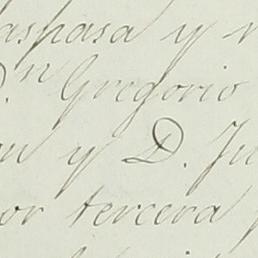 aspasa y
D.n Gregorio
y D. Ju
or tercera